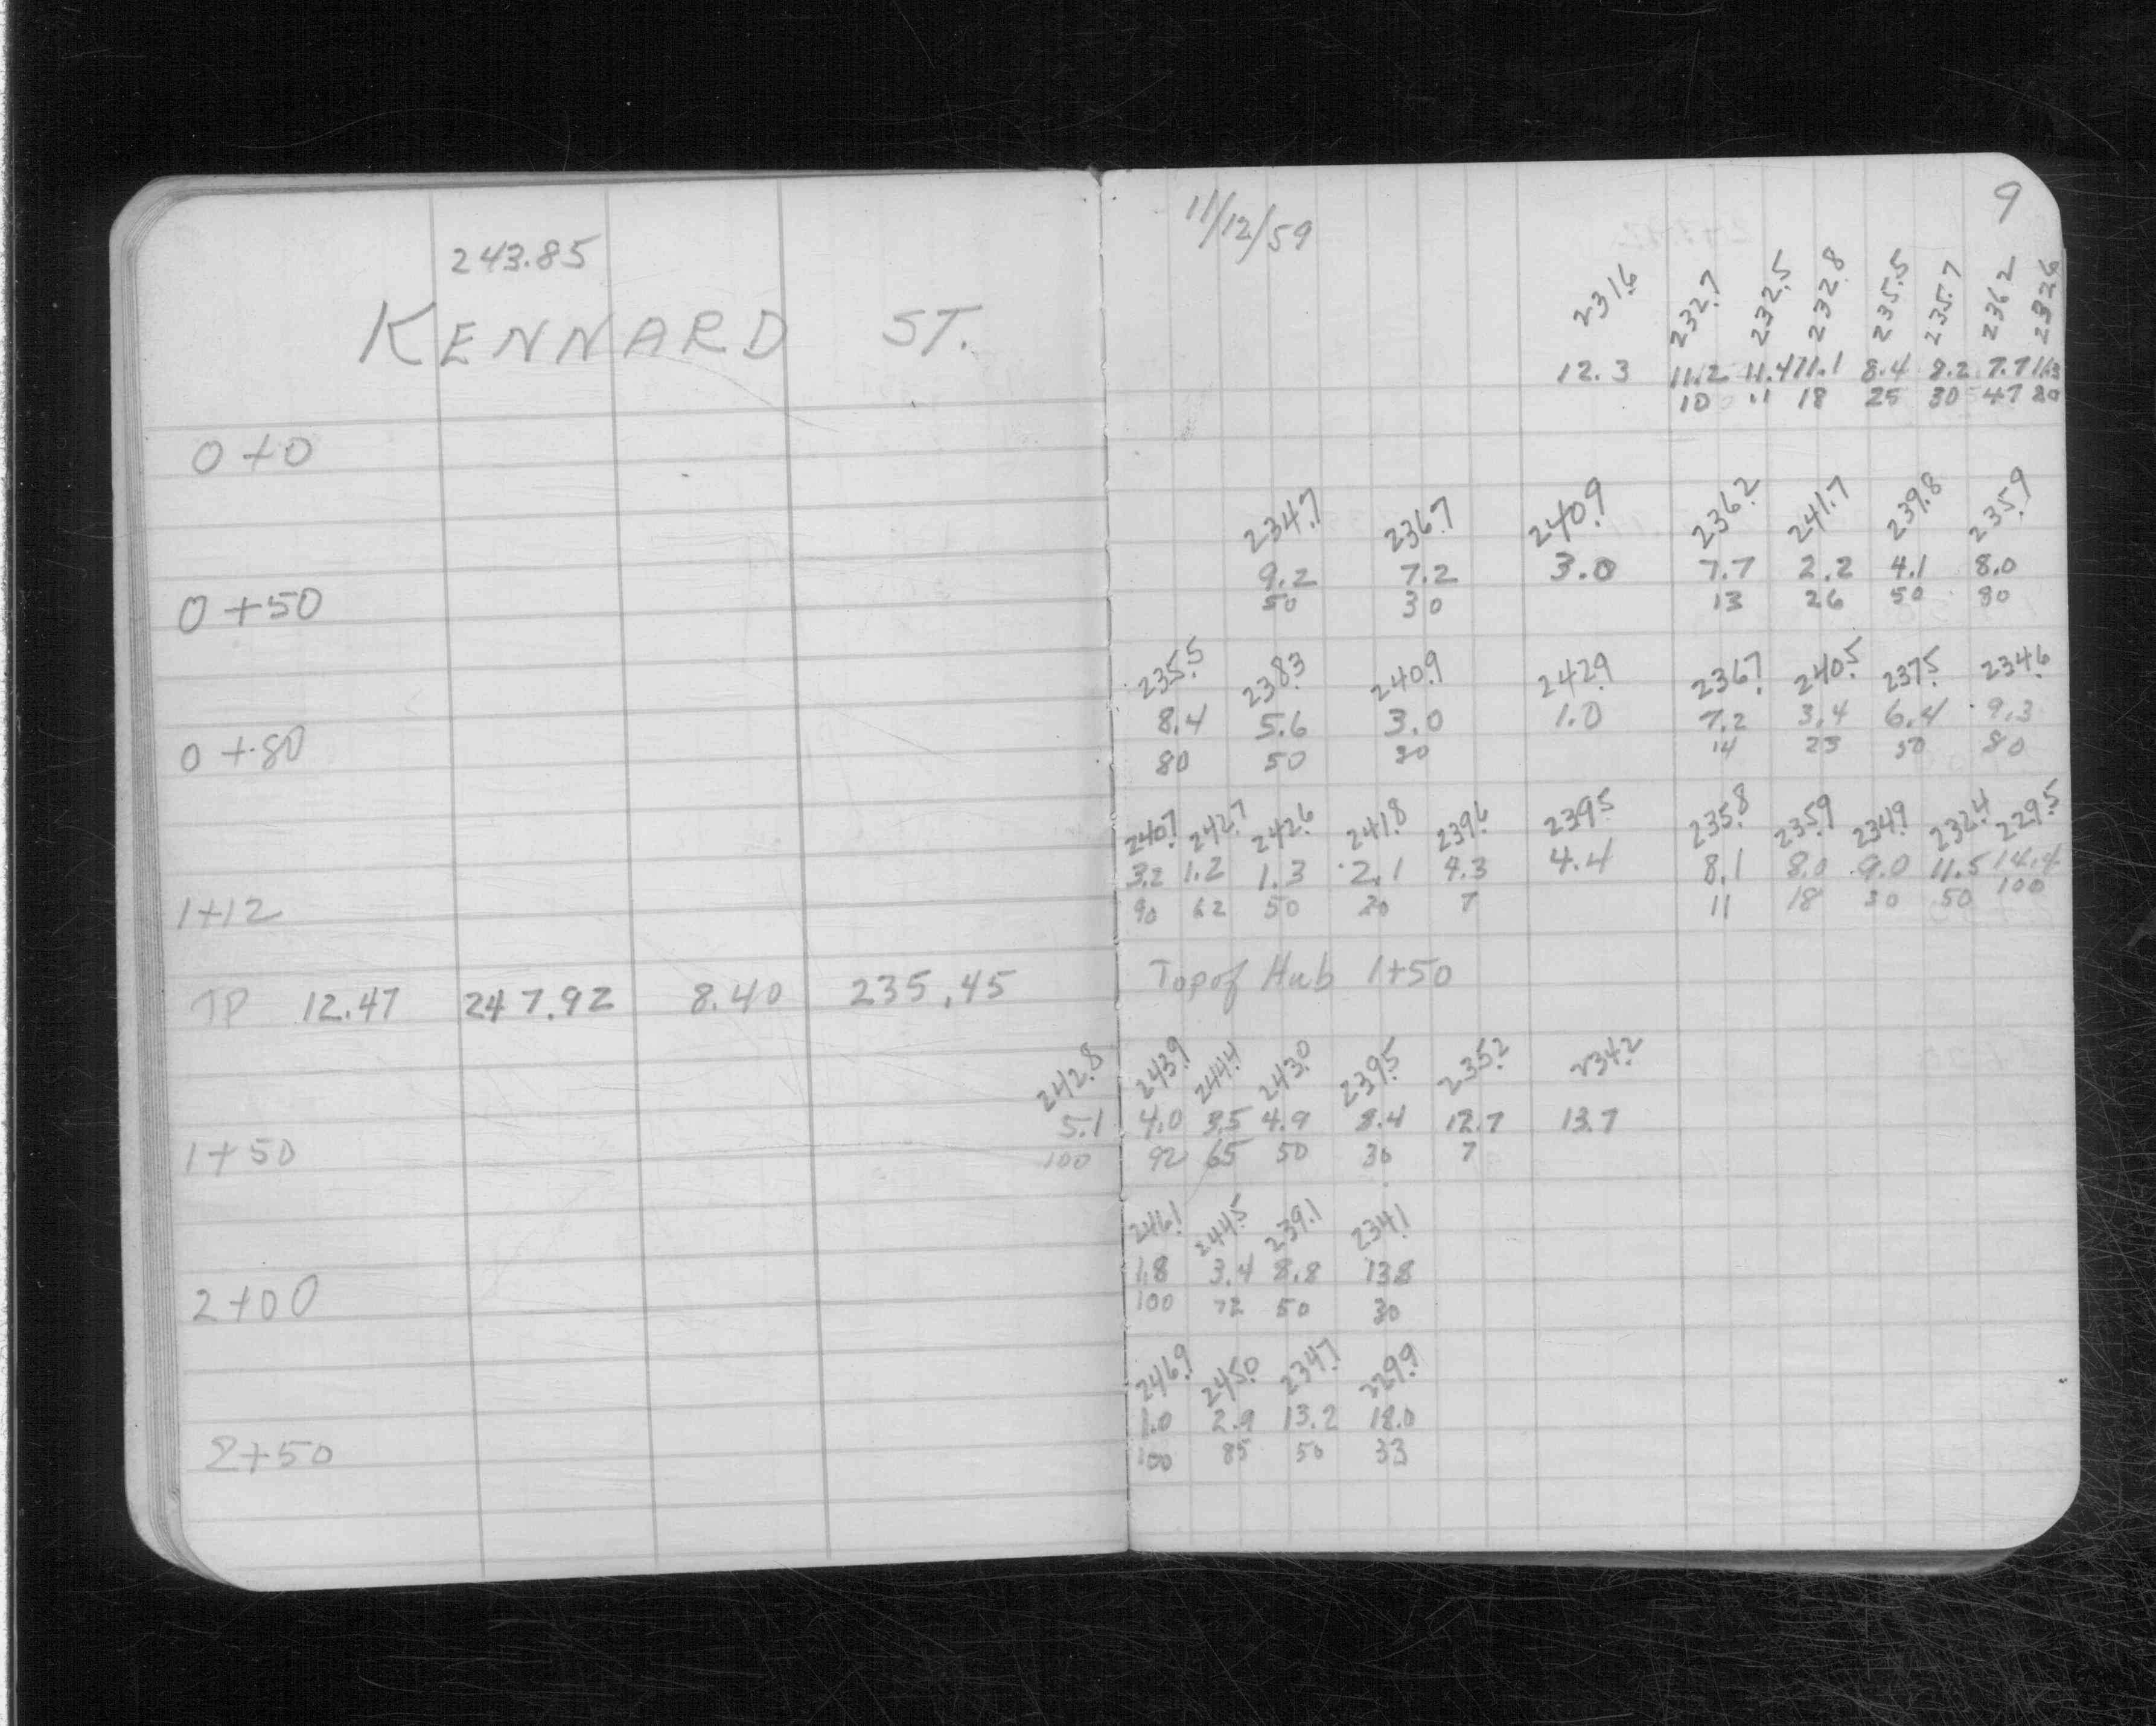 243.85
KENNARD ST.
0+0
0+50
0+80
1+12
TP 12.47 247.92 8.40 235.45
1+50
2+00
2+50
11/12/59 9
231.6 232.7 232.5 232.8 235.5 235.7 236.2 232.6
12.3 11.2 11.4 11.1 8.4 8.2 7.7 11.3
10 11 18 25 30 47 80
234.7 236.7 240.9 236.2 241.7 239.8 235.9
9.2 7.2 3.0 7.7 2.2 4.1 8.0
50 30 13 26 50 80
235.5 238.3 240.9 242.9 236.7 240.5 237.5 234.6
8.4 5.6 3.0 1.0 7.2 3.4 6.4 9.3
80 50 30 14 25 50 80
240.7 242.7 242.6 241.8 239.6 239.5 235.8 235.9 234.9 232.4 229.5
3.2 1.2 1.3 2.1 4.3 4.4 8.1 8.0 9.0 11.5 14.4
90 62 50 20 7 11 18 30 50 100
Top of Hub 1+50
242.8 243.9 244.4 243.0 239.5 235.2 234.2
5.1 4.0 3.5 4.9 8.4 12.7 13.7
100 92 65 50 30 7
246.1 244.5 239.1 234.1
1.8 3.4 8.8 13.8
100 72 50 30
246.9 245.0 234.7 229.9
1.0 2.9 13.2 18.0
100 85 50 33